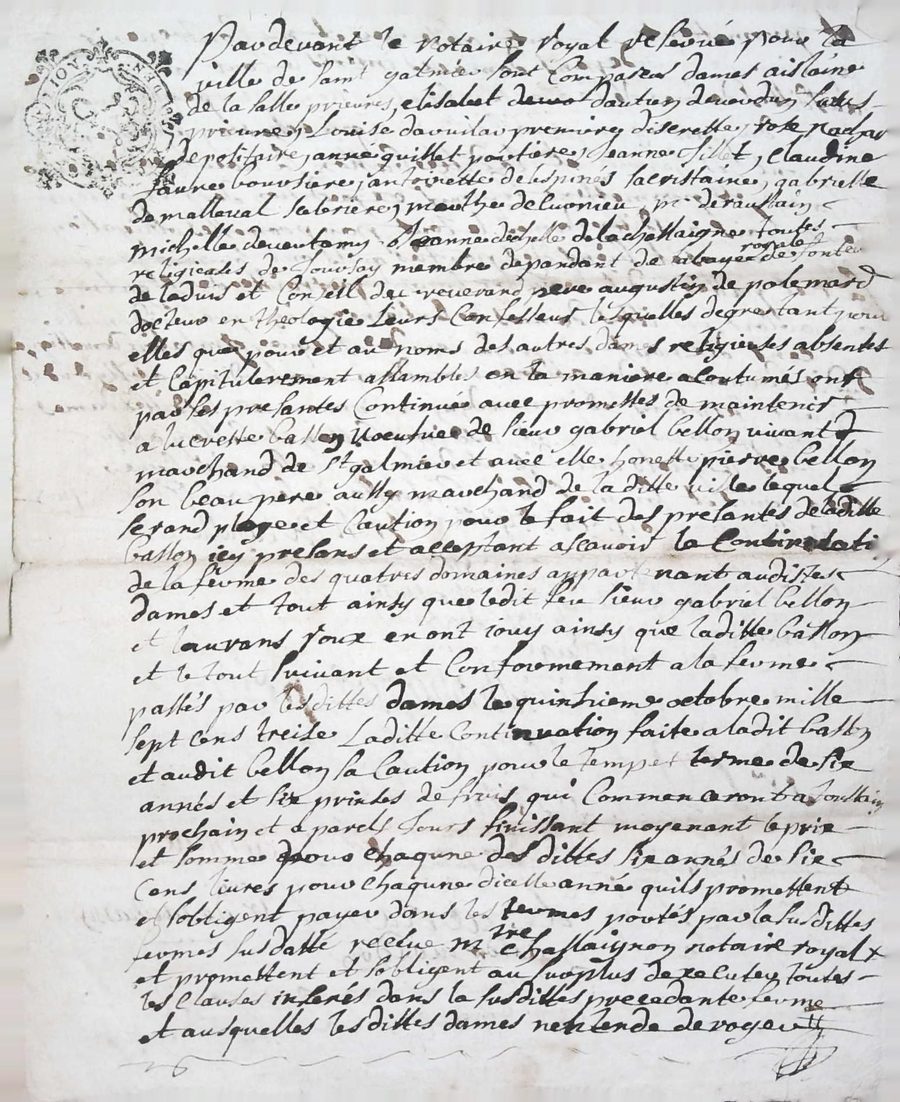 Pardevant le notaire royal reservé pour la
ville de saint galmier sont comparus dames aislaine
de la salle prieure, elisabet dautun de soubs
prieure, Louise davuilau premiere discrette, rose
depositaire, anne quillet portiere, Jeanne, Claudine
faure boursiere, antoinette despines sacristaine, gabrielle
de mallaval selbriere, marthe de, de
michelle, Jeanne de la chassaigne toutes
religieuses de Jourssay membre depandant de abaye royale de fontev
de ladvis et Conseil du reverand pere augustin de polemard
docteur en theologie leurs Confesseur lesquelles degre tant pour
elles que pour et au noms des autres dames religieuses absentes
et Capitulerement assambles en la maniere acoutumés ont
par les presantes Continué avec promettes de maintenir
a lucrette basson voeufve de sieur gabriel bellon vivant
marchand de St galmier et avec elle honette pierre bellon
son beau pere aussy marchand de la ditte ville lequel
se rand plege et Caution pour le fait des presantes de la ditte
basson icy presans et acceptant ascavoir la
de la ferme des quatres domaines apartenant audistes
dames et tout ainsy que ledit feu sieur gabriel bellon
et laurans Joux en ont jouy ainsy que laditte basson
et le tout suivant et Conformement a la ferme
passés par lesdittes dames le quinsieme octobre mille
sept cens treise Laditte Continuation faite a ladit basson
et audit bellon sa Caution pour le temp et terme de six
annés et six prinses de fruis qui Commenceront a toussain
prochain et a parels Jours finissant moyenant le prix
et somme pour chaqune des dittes six annés de six
Cens livres pour chaqune dicelle année quils promettent
et sobligent payer dans les termes portés par la susdittes
fermes susdatté recue mtre Chassaignon notaire royal
et promettent et sobligent au surplus dexecuter toutes
les Clauses inserés dans la susdittes precedante ferme
et ausquelles lesdittes dames nentende deroger